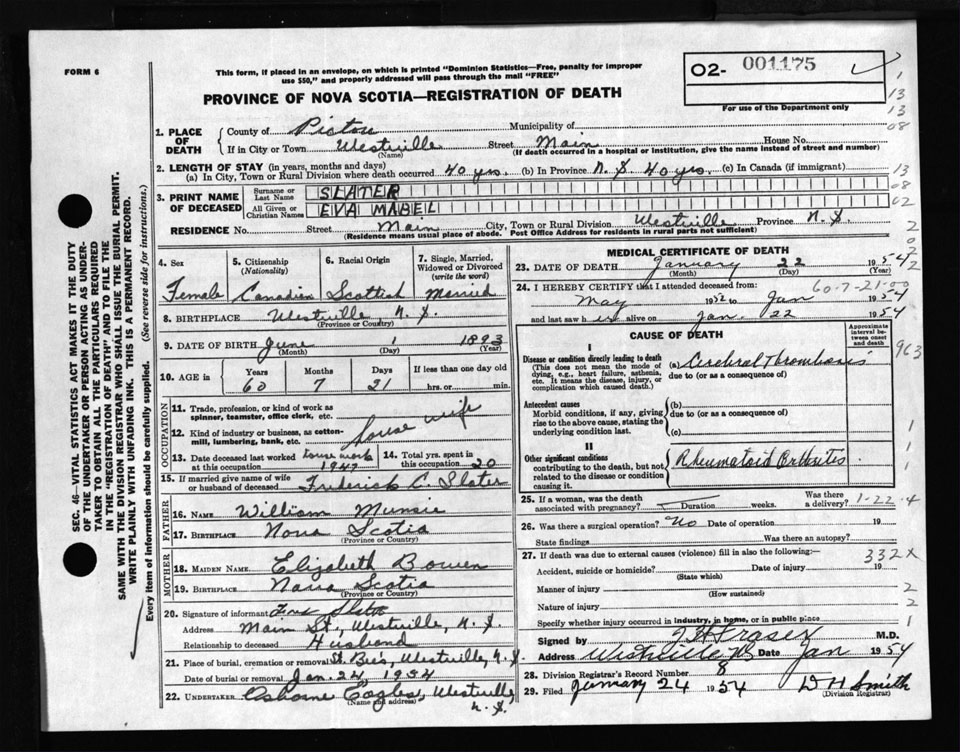 FORM 6
This form, if placed in an envelope, on which is printed "Dominion Statistics—Free, penalty for improper
use $50," and properly addressed will pass through the mail "FREE"
O2- 001175
For use of the Department only
PROVINCE OF NOVA SCOTIA—REGISTRATION OF DEATH
1. PLACE OF DEATH
County of Pictou Municipality of
If in City or Town Westville Street Main House No.
(Name) (If death occurred in a hospital or institution, give the name instead of street and number)
2. LENGTH OF STAY (in years, months and days)
(a) In City, Town or Rural Division where death occurred 40 yrs. (b) In Province N.S. 40 yrs. (c) In Canada (if immigrant)
3. PRINT NAME OF DECEASED
Surname or Last Name SLATER
All Given or Christian Names EVA MABEL
RESIDENCE No. Street Main City, Town or Rural Division Westville Province N.S.
(Residence means usual place of abode. Post Office Address for residents in rural parts not sufficient)
4. Sex 5. Citizenship (Nationality) 6. Racial Origin 7. Single, Married, Widowed or Divorced (write the word)
Female Canadian Scottish Married
8. BIRTHPLACE Westville N.S.
(Province or Country)
9. DATE OF BIRTH June 1 1893
(Month) (Day) (Year)
10. AGE in Years Months Days If less than one day old
60 7 21 hrs. or min.
OCCUPATION
11. Trade, profession, or kind of work as
spinner, teamster, office clerk, etc.
house wife
12. Kind of industry or business, as cotton-
mill, lumbering, bank, etc.
13. Date deceased last worked at this occupation house work 1947 14. Total yrs. spent in this occupation 20
15. If married give name of wife
or husband of deceased Frederick C. Slater
FATHER
16. NAME William Munsie
17. BIRTHPLACE Nova Scotia
(Province or Country)
MOTHER
18. MAIDEN NAME Elizabeth Bowen
19. BIRTHPLACE Nova Scotia
(Province or Country)
20. Signature of informant Slater
Address Main St., Westville, N.S.
Relationship to deceased Husband
21. Place of burial, cremation or removal St. Bees, Westville, N.S.
Date of burial or removal Jan. 24, 1954
22. UNDERTAKER Osborne Westville,
(Name and address) N.S.
MEDICAL CERTIFICATE OF DEATH
23. DATE OF DEATH January 22 1954
(Month) (Day) (Year)
24. I HEREBY CERTIFY that I attended deceased from: 60-7-21-00
May 1952 to Jan 1954
and last saw her alive on Jan. 22 1954
CAUSE OF DEATH
Approximate interval between onset and death
I
Disease or condition directly leading to death
(This does not mean the mode of
dying, e.g., heart failure, asthenia,
etc. It means the disease, injury, or
complication which caused death.)
(a) Cerebral Thrombosis
due to (or as a consequence of)
Antecedent causes
Morbid conditions, if any, giving
rise to the above cause, stating the
underlying condition last.
(b)
due to (or as a consequence of)
(c)
II
Other significant conditions
contributing to the death, but not
related to the disease or condition
causing it.
Rheumatoid Arthritis
25. If a woman, was the death associated with pregnancy? Duration weeks. Was there a delivery? 1-22-4
26. Was there surgical operation? No Date of operation 19
State findings Was there an autopsy?
27. If death was due to external causes (violence) fill in also the following: 332X
Accident, suicide or homicide? Date of injury 19
(State which)
Manner of injury
(How sustained)
Nature of injury
Specify whether injury occurred in industry, in home, or in public place
Signed by J H Fraser M.D.
Address Westville NS Date Jan 1954
28. Division Registrar's Record Number 8
29. Filed January 24 1954 D H Smith
(Division Registrar)
SEC. 46—VITAL STATISTICS ACT MAKES IT THE DUTY
OF THE UNDERTAKER OR PERSON ACTING AS UNDER-
TAKER TO OBTAIN ALL THE PARTICULARS REQUIRED
IN THE "REGISTRATION OF DEATH" AND TO FILE THE
SAME WITH THE DIVISION REGISTRAR WHO SHALL ISSUE THE BURIAL PERMIT.
WRITE PLAINLY WITH UNFADING INK. THIS IS A PERMANENT RECORD.
Every item of information should be carefully supplied. (See reverse side for instructions.)
1
13
13
08
13
08
02
2
0
2
2
963
1
1
2
2
1